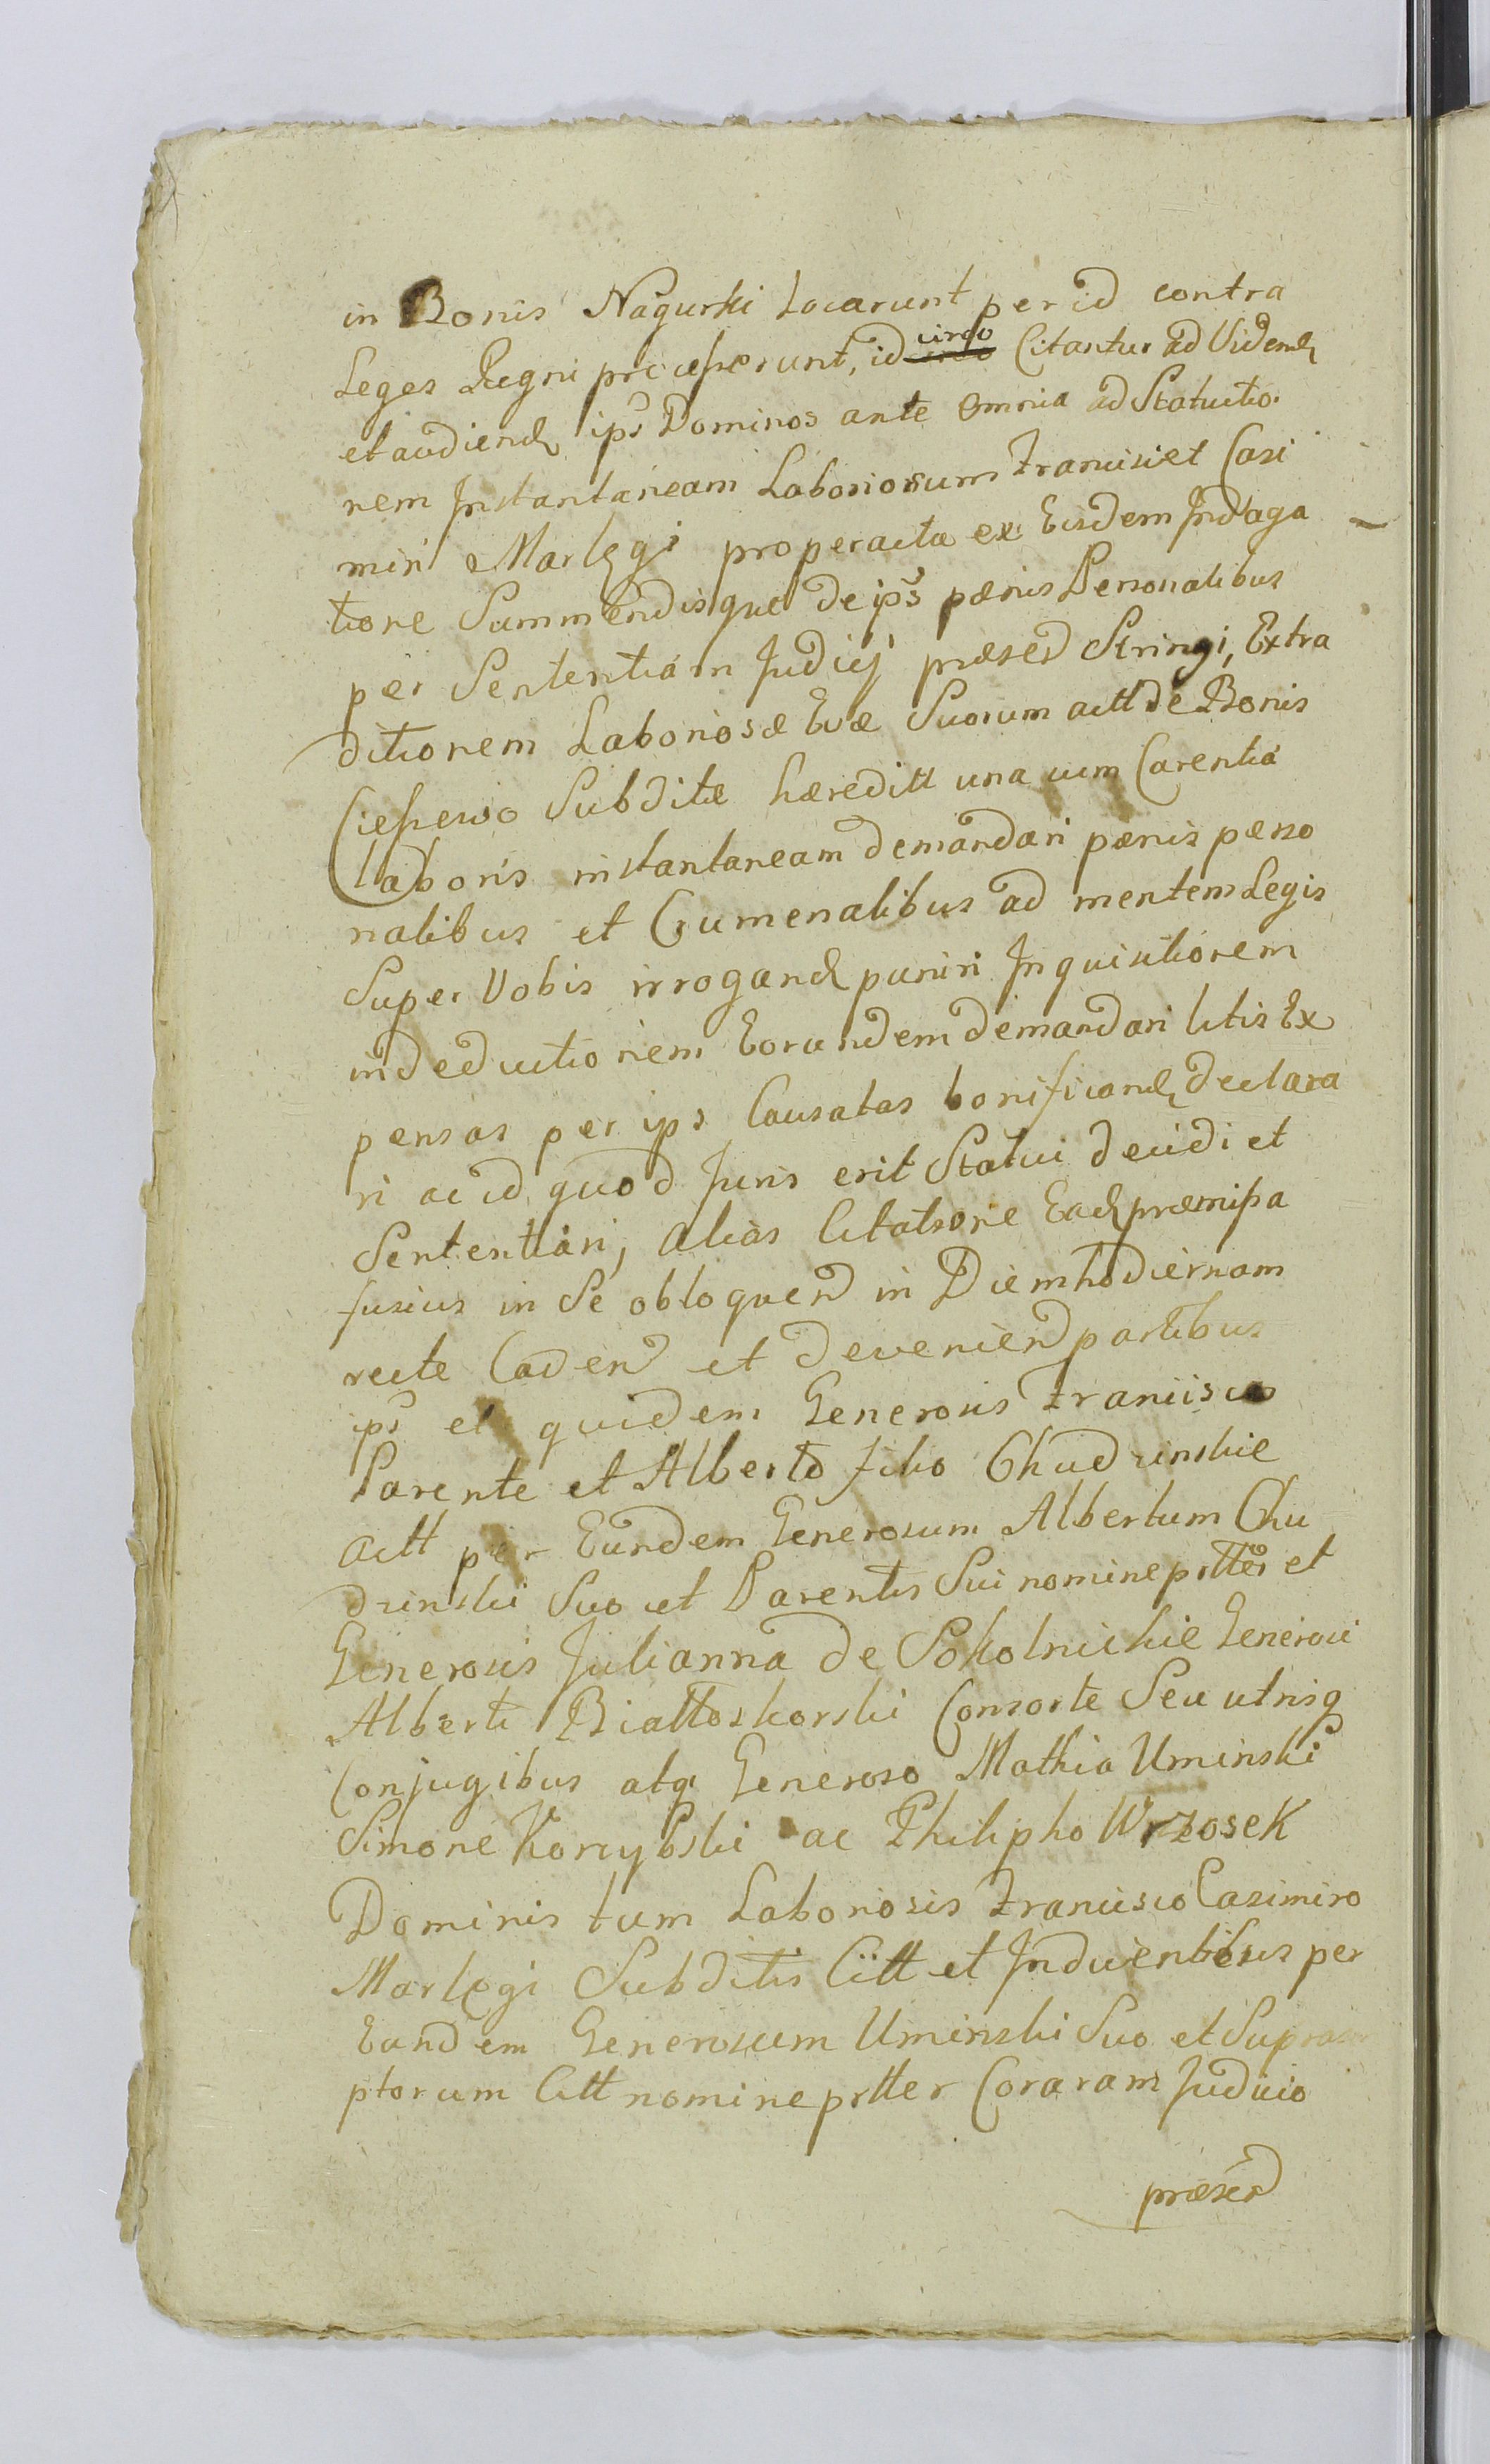 in Bonis Nagurki Locarunt per id contra
Leges Regni processerunt, id circo Citantur ad Videnđ
et audienđ ips Dominos ante omnia ad Statuitio
nem Instantaneam Laboriosum Francisi et Casi
miri Marlęgi pro peracta ex Eisdem Indaga
tione Summendisque de ips pænis Personalibus
per Sententiam Judicij præsend Stringi, Extra
ditionem Laboriosæ Evæ Suorum actt de Bonis
Ciessewo Subditæ hæreditt una cum Carentia
Laboris instantaneam demandari pænis perso
nalibus et Crumenalibus ad mentem Legis
Super Vobis irroganđ puniri Inquisitionem
in deductionem Eorundem demandari litis Ex
pensas per ips Causatas bonificanđ declara
ri ac id quod Juris erit Statui decidi et
Sententiari, alias Citatione Eađ præmissa
fusius in Se obloquend in Diem hodiernam
recte Cadend et deveniend partibus
ips et quidem Generosis Francisco
Parente et Alberto filio Chudzinskie
actt per Eundem Generosum Albertum Chu
dzinski Suo et Parentis Sui nomine pttter et
Generosis Julianna de Sokolnickie Generosi
Alberti Biattoskorski Consorte Seu utrisq
Conjugibus atq Generoso Mathia Uminski
Simone Korcybski ac Philipho Wrzosek
Dominis tum Laboriosis Francisco Casimiro
Marlęgi Subditis Citt et Inducentibus per
Eundem Generosum Uminski Suo et Suprascr
ptorum Citt nomine pttter Coraram Judicio
præsend